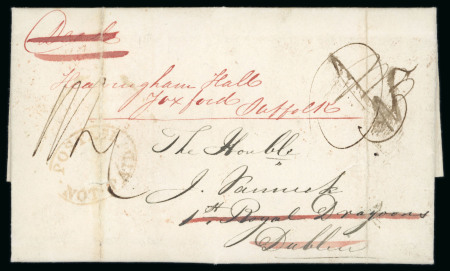 Heaveningham Hall
Yoxford Suffolk
The Honble
J. Vanneck
1st Royal Dragoons
Dublin
POST
NOT PAID